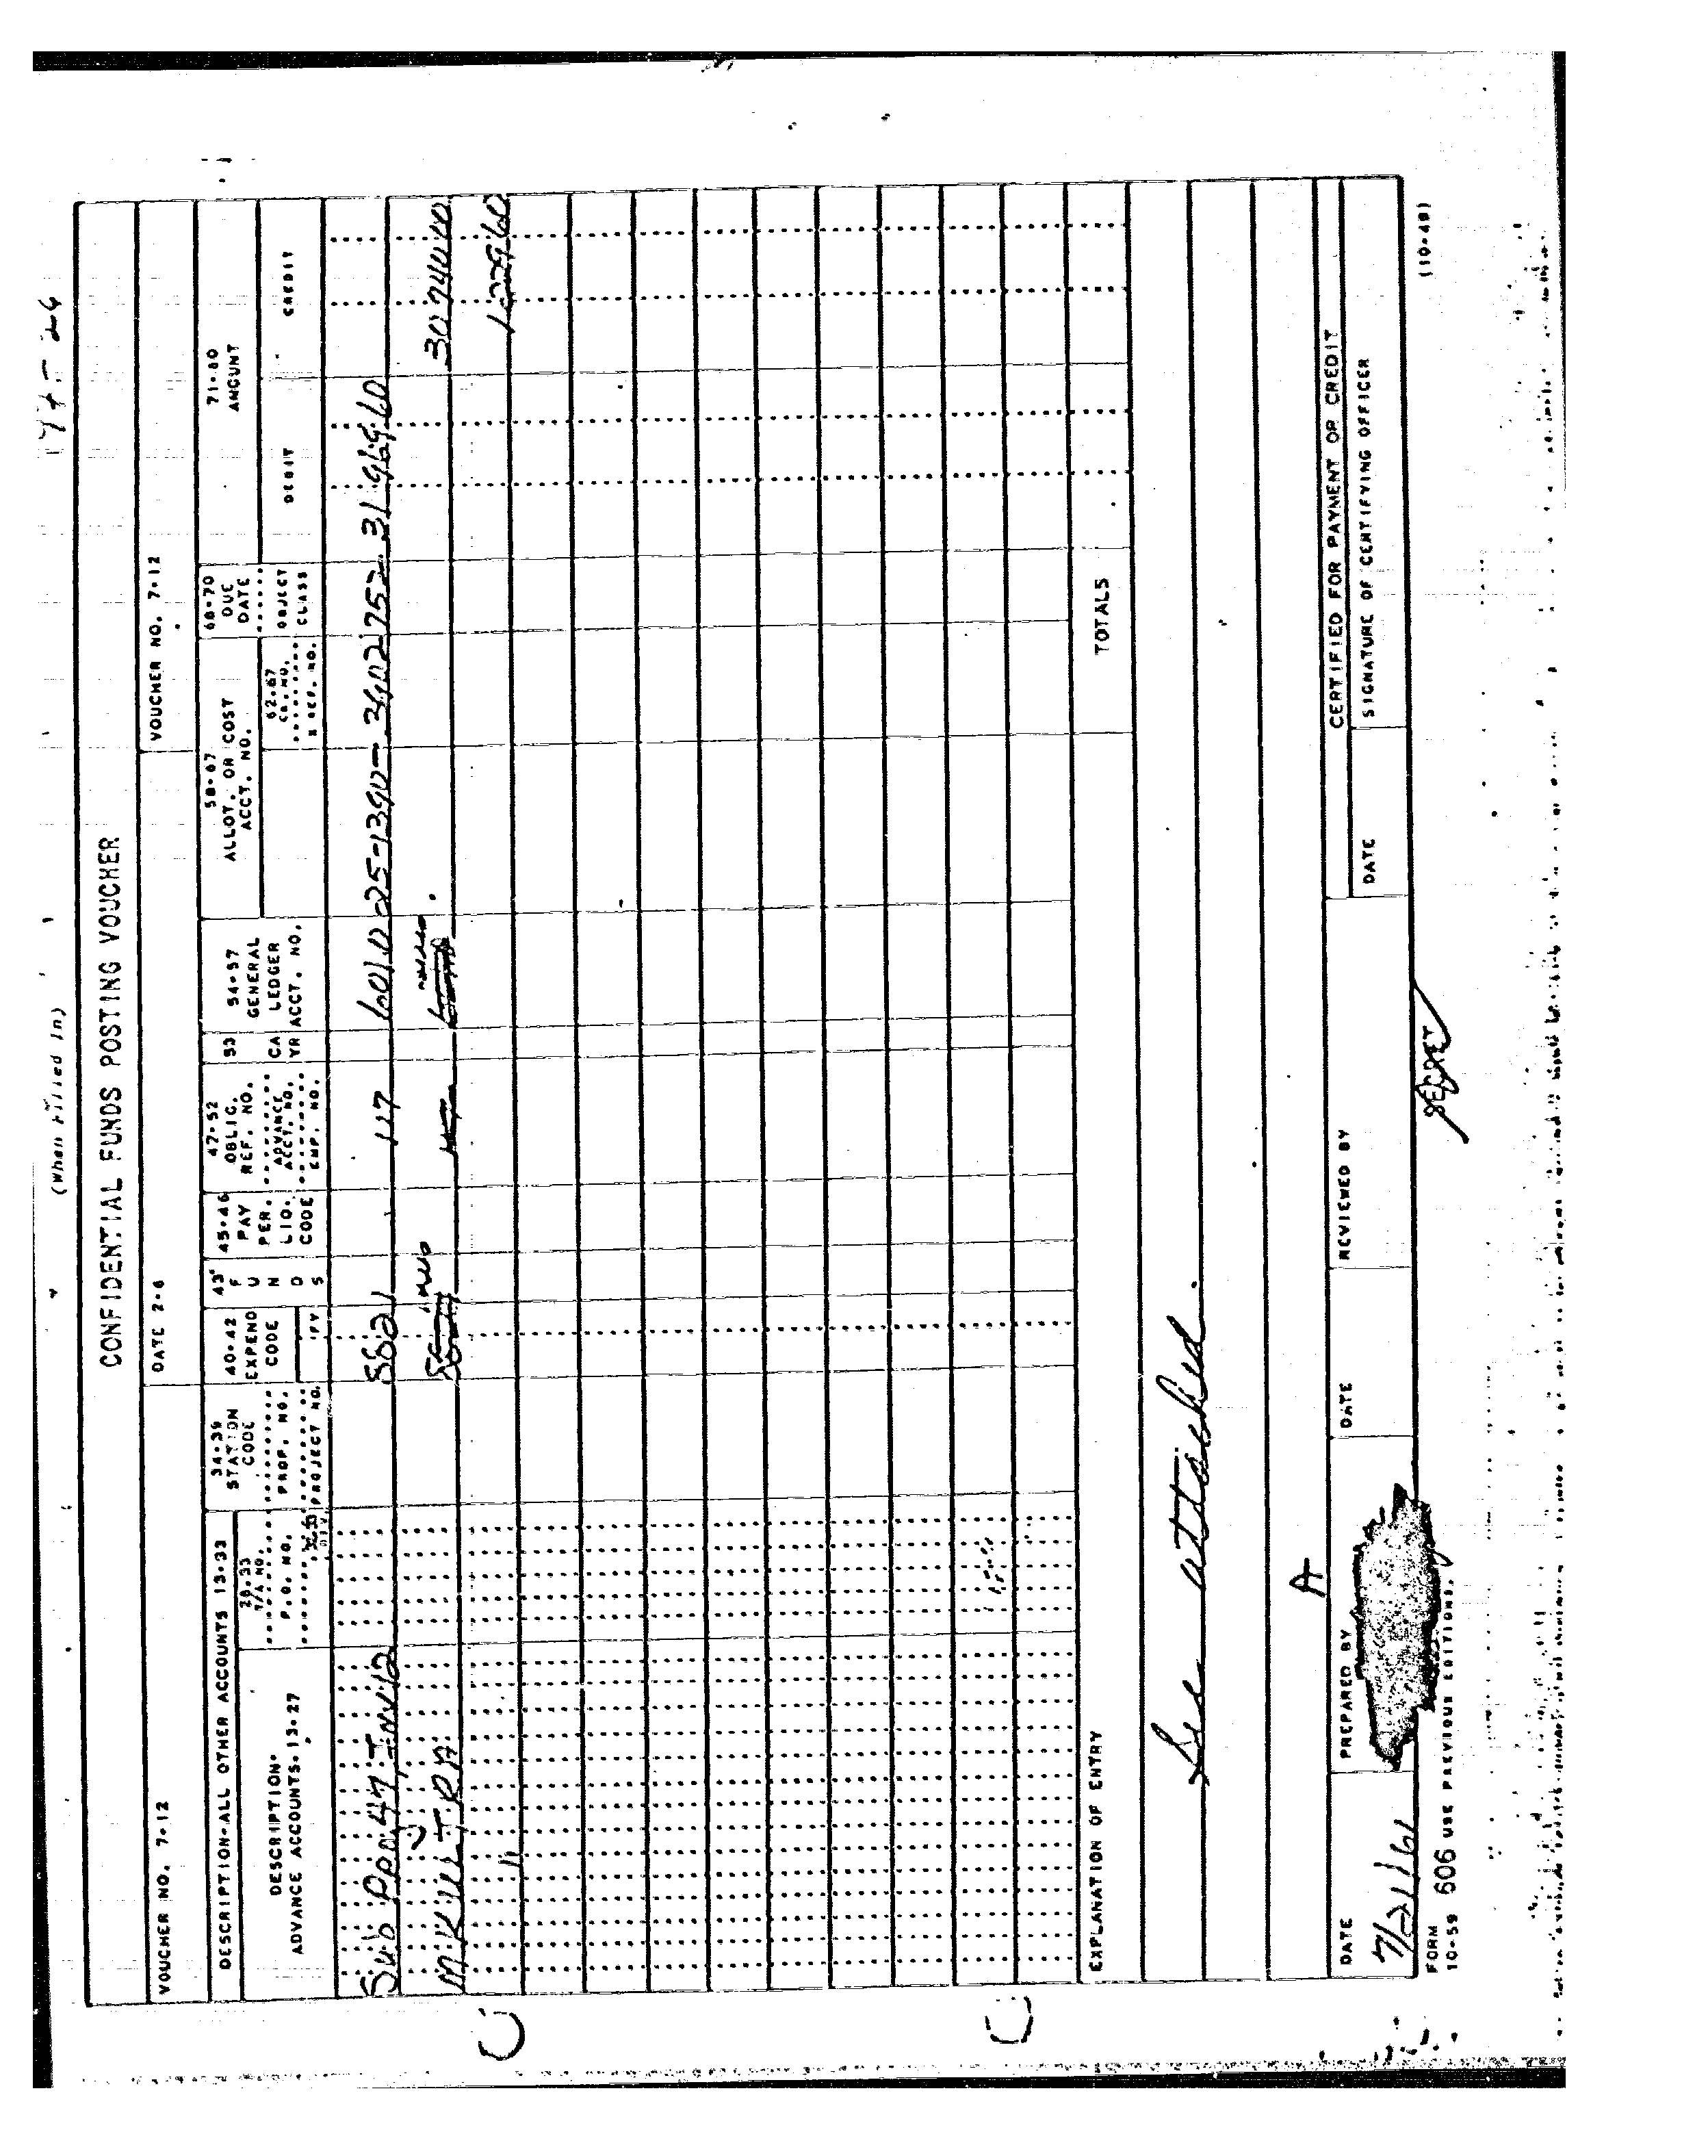 (When Filled In)
CONFIDENTIAL FUNDS POSTING VOUCHER
VOUCHER NO. 7-12
DATE 2-6
VOUCHER NO. 7-12
DESCRIPTION-ALL OTHER ACCOUNTS 13-33
DESCRIPTION-
ADVANCE ACCOUNTS-13-27
28-33
T/A NO.
P.O. NO.
34-39
STATION
CODE
PROP. NO.
PROJECT NO.
40-42
EXPEND
CODE
43
F
U
N
D
S
45-46
PAY
PER.
LIQ.
CODE
47-52
OBLIG.
REF. NO.
ADVANCE
ACCT. NO.
EMP. NO.
53
CA
YR
54-57
GENERAL
LEDGER
ACCT. NO.
58-67
ALLOT. OR COST
ACCT. NO.
62-67
CK. NO.
X REF. NO.
68-70
DUE
DATE
OBJECT
CLASS
71-80
AMOUNT
DEBIT
CREDIT
Sub Proj 47 Inv 12
117
601.0
25-1390-
31 969.60
1229 60
TOTALS
EXPLANATION OF ENTRY
See attached.
A
DATE
7/21/61
PREPARED BY
DATE
REVIEWED BY
CERTIFIED FOR PAYMENT OR CREDIT
DATE
SIGNATURE OF CERTIFYING OFFICER
FORM
10-59 606 USE PREVIOUS EDITIONS.
SECRET
(10-49)